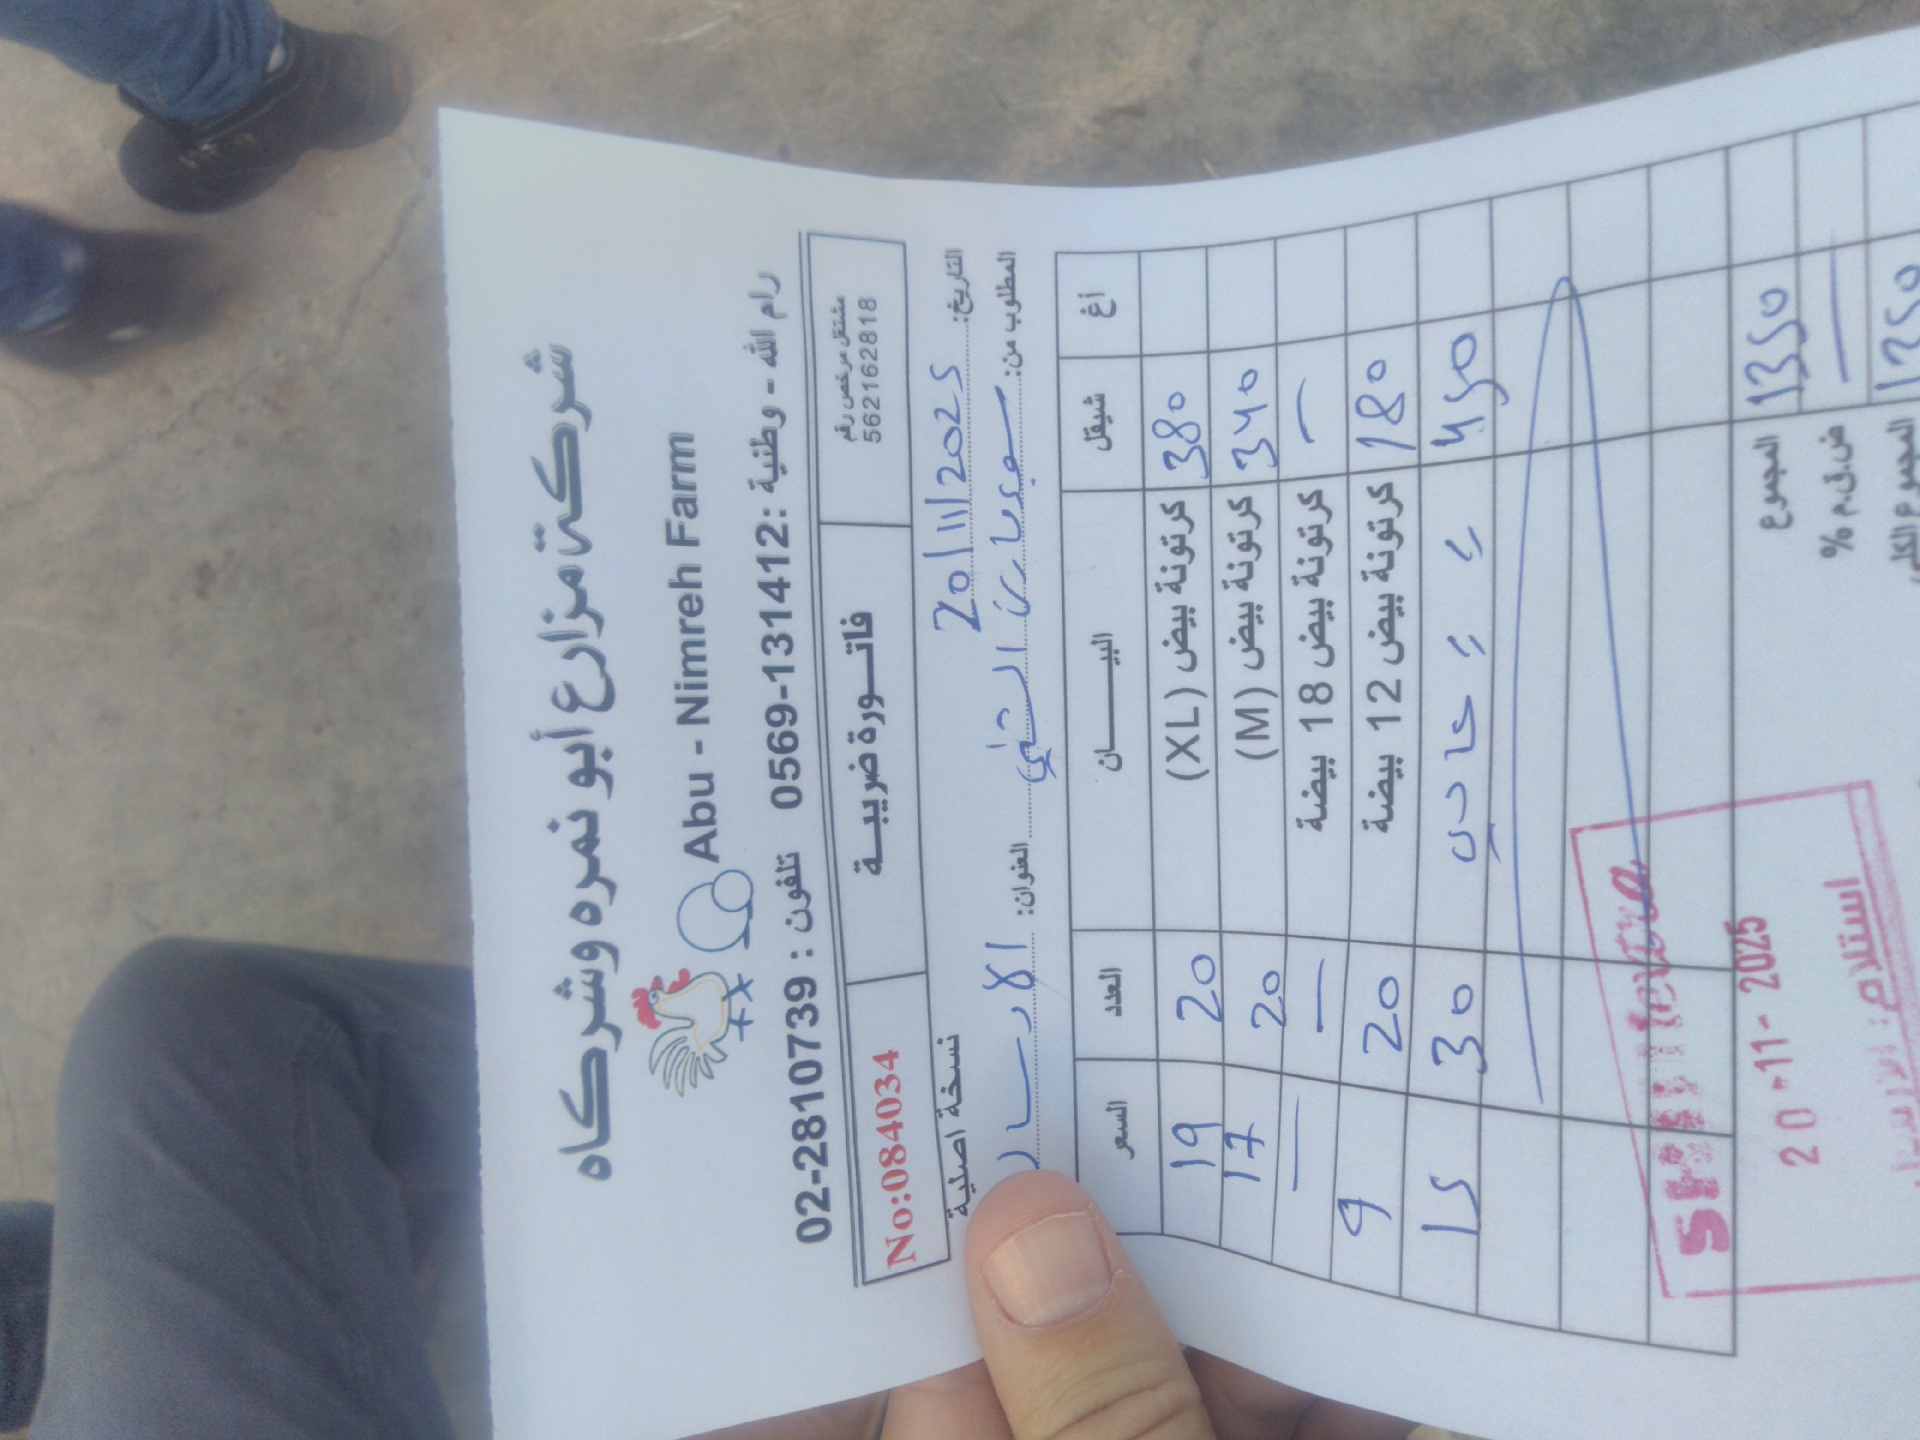 شركة مزارع أبو نمره وشركاه
Abu - Nimreh Farm
رام الله - وطنية : 0569-131412 تلفون : 02-2810739
مشتغل مرخص رقم
562162818
فاتـــورة ضريبيـــة
No:084034
التاريخ: 20/11/2025
نسخة اصلية
المطلوب من: سوبر ماركت العنوان: الارسال
أغ شيقل البيـــــان العدد السعر
380 كرتونة بيض (XL) 20 19
340 كرتونة بيض (M) 20 17
— كرتونة بيض 18 بيضة — —
180 كرتونة بيض 12 بيضة 20 9
450 " " 30 15
1350 المجموع
— ض.ق.م %
1350 المجموع الكلي
20-11-2025
استلام: الارسال